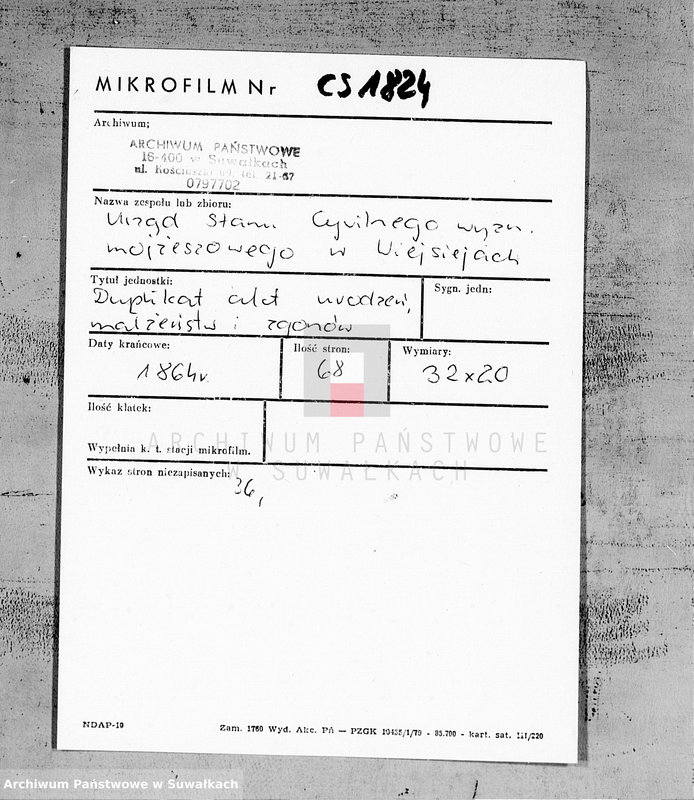 MIKROFILM Nr CS 1824
Archiwum;
ARCHIWUM PAŃSTWOWE
16-400 w Suwałkach
ul. Kościuszki 69, tel. 21-67
0797702
Nazwa zespołu lub zbioru:
Urząd Stanu Cywilnego wyzn.
mojżeszowego w Wiejsiejach
Tytuł jednostki:
Sygn. jedn:
Duplikat akt urodzeń,
małżeństw i zgonów
Daty krańcowe:
Ilość stron:
Wymiary:
1864r.
68
32x20
Ilość klatek:
Wypełnia k. t. stacji mikrofilm.
ARCHIWUM PAŃSTWOWE
W SUWAŁKACH
Wykaz stron niezapisanych:
36,
NDAP-10
Zam. 1760 Wyd. Akc. Pń — PZGK 19455/1/79 - 85.700 - kart. sat. III/220
Archiwum Państwowe w Suwałkach